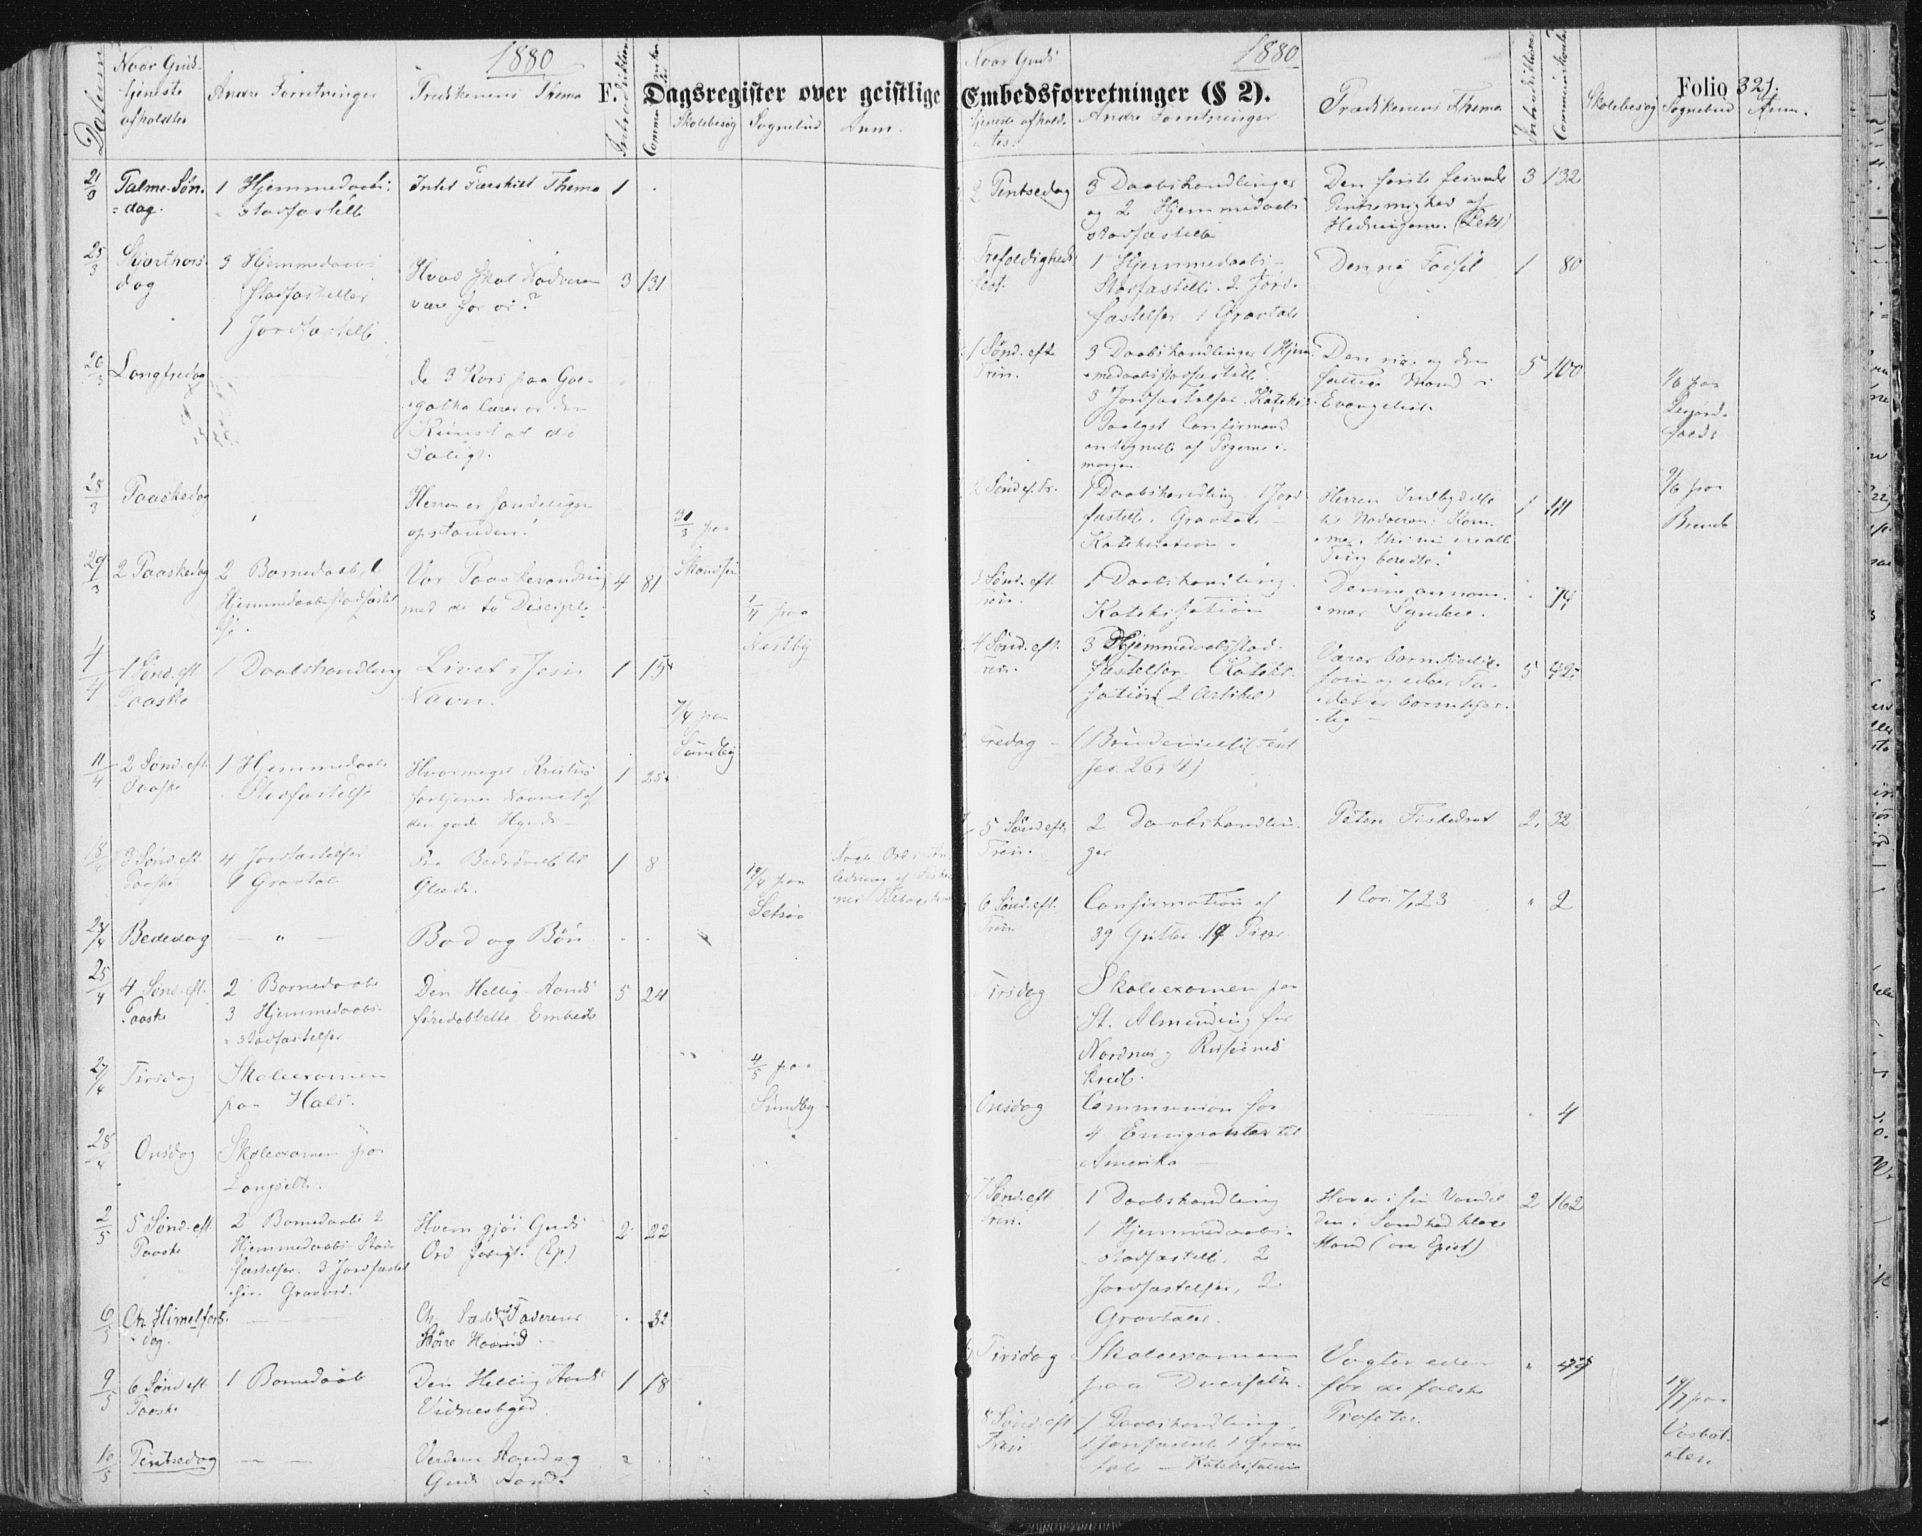 1880
1880
F. Dagsregister over geistlige Embedsforretninger (§ 2).
Folio 321.
Datum
Naar Guds-
tjeneste
afholdtes
Andre Forretninger
Prædikenens Thema
Skolebesøg
Sognebud
Anm.
21/3 Palme-Søn-
dag.
1 Hjemmedaabs-
stadfæstelse
Intet særskilt Thema
1
25/3 Skjærthors-
dag
3 Hjemmedaabs
stadfæstelser
1 Jordfæstelse
Hvad skal Nadveren
være for os?
3 131
26/3 Langfredag
De 3 Kors paa Gol-
gatha lærer os den
Kunst at dø
saligt.
28/3 Paaskedag
Herren er sandeligen
opstanden!
31/3 paa
29/3 2 Paaskedag
2 Barnedaab, 1
Hjemmedaabsstadfæstel
se.
Vor Paaskevandring
med de to Disciple
4 81
1/4 paa
Nestby
4/4 1 Sønd. eft.
Paaske
1 Daabshandling
Livet i Jesu
Navn.
1 154
7/4 paa
Sundby
11/4 2 Sønd. eft.
Paaske
1 Hjemmedaabs
Stadfæstelse
Hvormeget Kristus
fortjener Navnet af
den gode Hyrde
1 25
18/4 3 Sønd. eft.
Paaske
4 Jordfæstelser
1 Gravtale
Fra Bedrøvelse til
Glæde.
1 8
19/4 paa
Setsaa
Bededag
- " -
Bod og Bøn
25/4 4 Sønd. eft.
Paaske
2 Barnedaab
3 Hjemmedaabs-
stadfæstelser
Den Hellig-Aands
firedobbelte Embede
5 24
27/4 Tirsdag
Skoleexamen
paa Hals.
4/5 paa
Sundby
28/4 Onsdag
Skoleexamen paa
2/5 5 Sønd. eft.
Paaske
2 Barnedaab 2
Hjemmedaabs-Stad-
fæstelser. 3 Jordfæstel
Hvem gjør Guds
Ord saligt. (Ep.)
2 22
6/5 Ch. Himelfarts-
dag.
Ch. Sæde ved Faderens
høire Haand
32
9/5 6 Sønd. eft.
Paaske
1 Barnedaab
Den Hellig Aands
Vidnesbyrd.
1 18
16/5 Pintsedag
Verdens Aand og
Guds Aand.
Naar Guds
tjeneste afhold-
tes.
Andre Forretninger
Prædikenens Thema
Skolebesøg
Sognebud
Anm.
2 Pintsedag
3 Daabshandlinger
og 2 Hjemmedaabs
stadfæstelse
Den første feirende
Pintsemenighed af
Hedningerne. (Text)
3 132
Trefoldigheds
fest.
1 Hjemmedaabs-
Stadfæstelse. 2 Jord-
fæstelser 1 Gravtale
Den ny Fødsel
1 80
1 Sønd. eft.
Trin.
3 Daabshandlinger 1 Hjem-
medaabsstadfæstelse
3 Jordfæstelser. Katekis.
Den rige og den
fattige Mand i
Evangeliet.
5 100
1/6 paa
2 Sønd. ef. Tr.
1 Daabshandling 1 Jord-
fæstelse. Gravtale
Katekisation.
Herren Indbydelse
til Nadveren: Kom-
mer, thi nu ere alle
Ting beredte!
1 111
9/6 paa
3 Sønd. eft.
Trin.
1 Daabshandling.
Katekisation
Denne annam-
mer Syndere.
74
4 Sønd. eft.
Trin.
3 Hjemmedaabsstad-
fæstelser. Kateki-
sation (2 Artikel)
Værer barmhjertige
som og eders Fa-
der er barmhjer-
tig
5 42
Fredag
1 Brudevielse (Text
Jes. 26, 4)
5 Sønd. eft.
Trin.
2 Daabshandlin-
ger
Peters Fiskedræt
2. 32
6 Sønd. eft.
Trin.
Confirmation af
39 Gutter 19 Piger
1 Cor. 7,23
" 2
Tirsdag
Skoleexamen paa
St. Alminding for
Nordnæs og Rusaanes
kreds.
Onsdag
Communion for
4 Emigranter til
Amerika
4
7 Sønd. eft.
Trin.
1 Daabshandling
1 Hjemmedaabs-
stadfæstelse, 2
Jordfæstelser, 2
Gravtaler.
2 162
Tirsdag
Skoleexamen
paa Dverset.
Vogter eder
for de falske
Profeter.
8 Sønd. eft.
Trin
1 Daabshandling
1 Jordfæstelse 1 Grav-
tale - Katekisation
19/7 paa